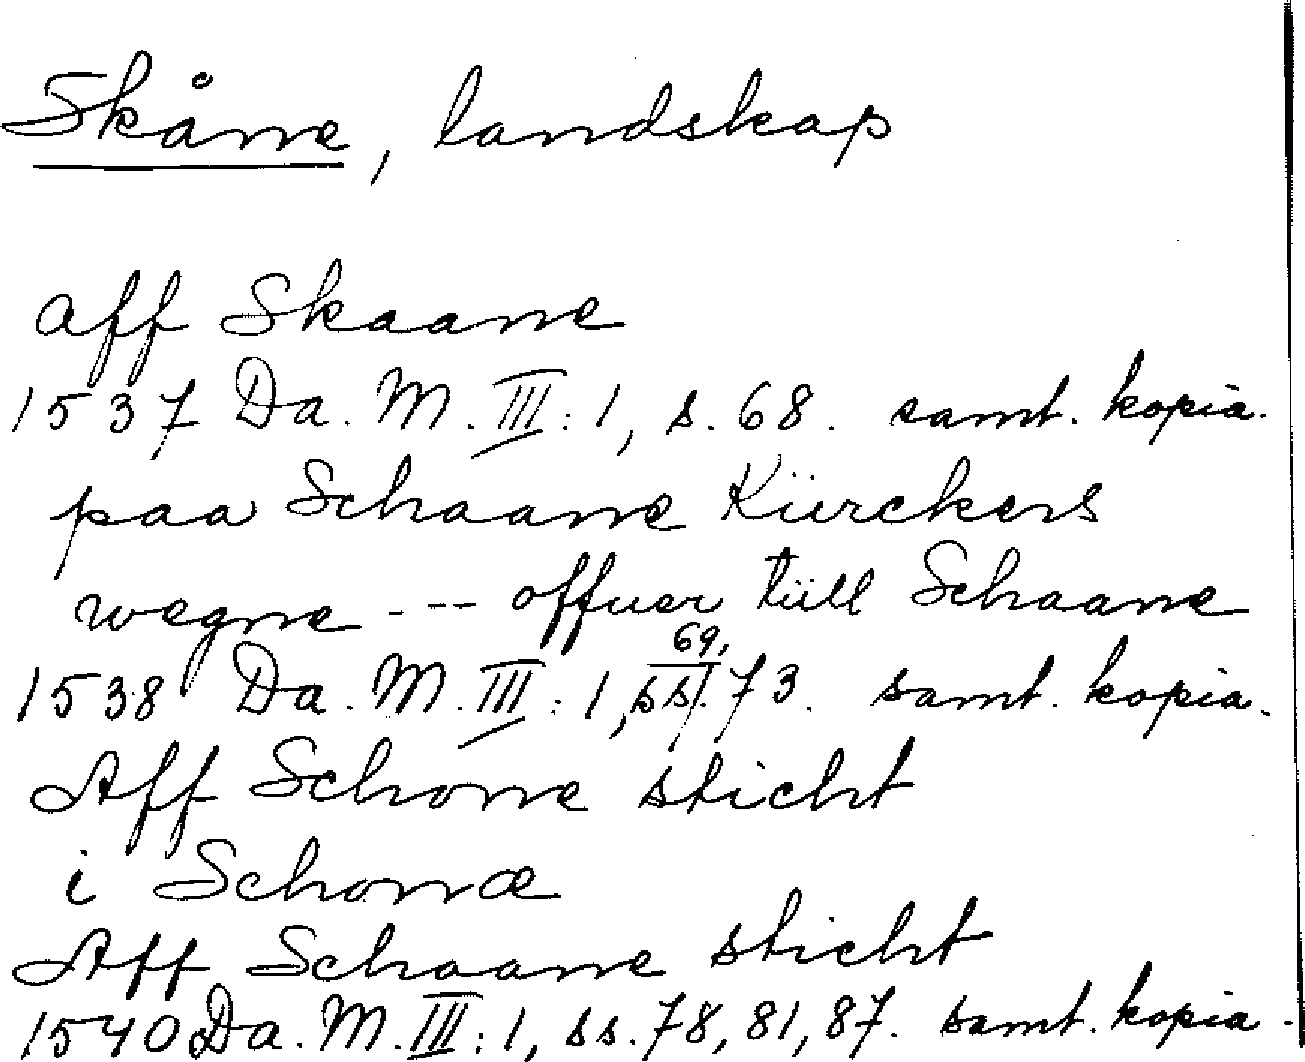 Skåne, landskap
aff Skaane
1537 Da. M. III: 1, s. 68. samt. kopia.
paa Schaane Kürckens
wegne --- offuer tüll Schaane
1538 Da. M. III: 1, ss. 69, 73. samt. kopia.
Aff Schone sticht
i Schonæ
Aff Schaane sticht
1540 Da. M. III: 1, ss. 78, 81, 87. samt. kopia.